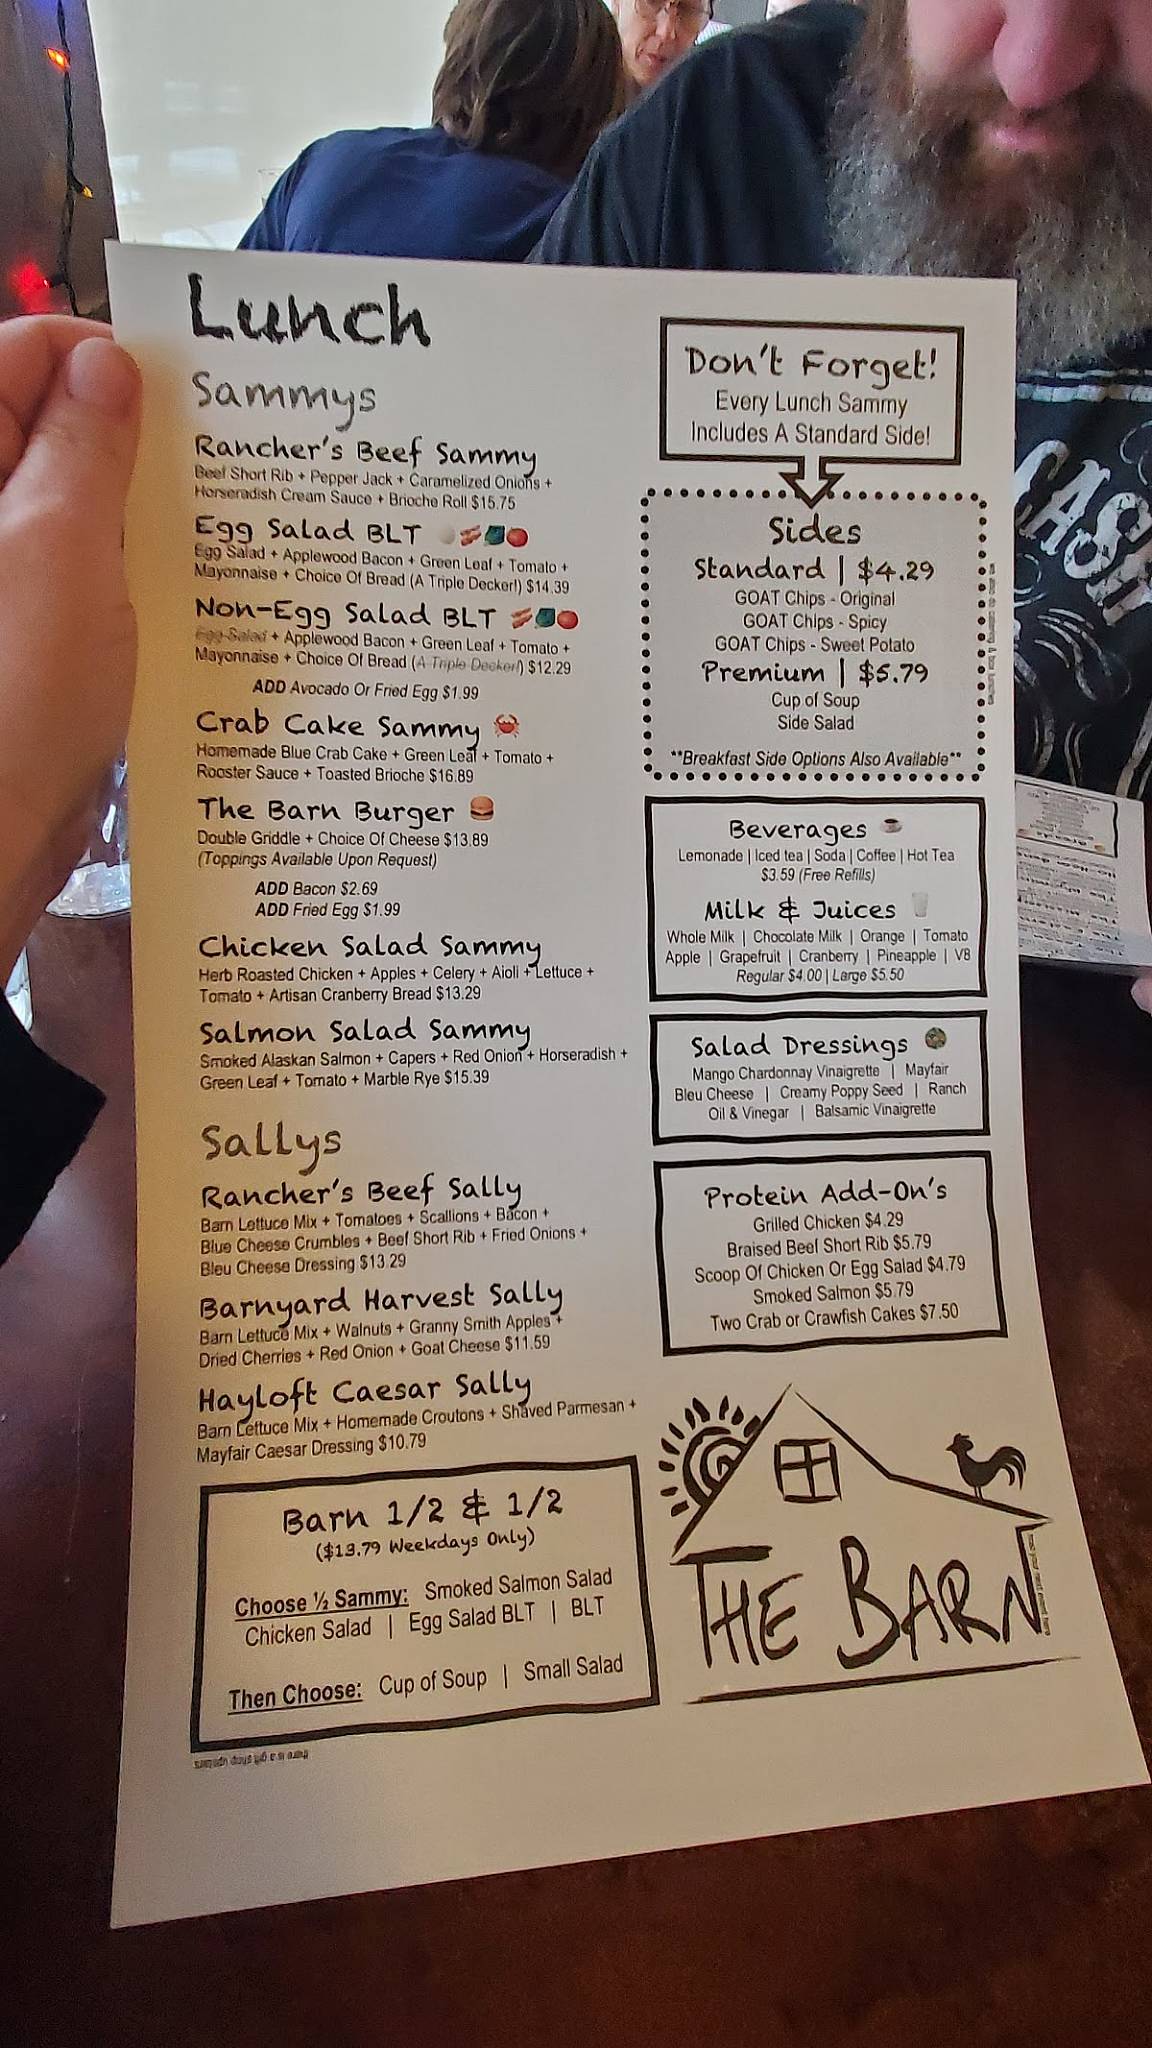 Lunch
Sammys
Rancher's Beef Sammy
Beef Short Rib + Pepper Jack + Caramelized Onions +
Horseradish Cream Sauce + Brioche Roll $15.75
Egg Salad BLT
Egg Salad + Applewood Bacon + Green Leaf + Tomato +
Mayonnaise + Choice Of Bread (A Triple Decker!) $14.39
Non-Egg Salad BLT
Egg Salad + Applewood Bacon + Green Leaf + Tomato +
Mayonnaise + Choice Of Bread (A Triple Decker!) $12.29
ADD Avocado Or Fried Egg $1.99
Crab Cake Sammy
Homemade Blue Crab Cake + Green Leaf + Tomato +
Rooster Sauce + Toasted Brioche $16.89
The Barn Burger
Double Griddle + Choice Of Cheese $13.89
(Toppings Available Upon Request)
ADD Bacon $2.69
ADD Fried Egg $1.99
Chicken Salad Sammy
Herb Roasted Chicken + Apples + Celery + Aioli + Lettuce +
Tomato + Artisan Cranberry Bread $13.29
Salmon Salad Sammy
Smoked Alaskan Salmon + Capers + Red Onion + Horseradish +
Green Leaf + Tomato + Marble Rye $15.39
Sallys
Rancher's Beef Sally
Barn Lettuce Mix + Tomatoes + Scallions + Bacon +
Blue Cheese Crumbles + Beef Short Rib + Fried Onions +
Bleu Cheese Dressing $13.29
Barnyard Harvest Sally
Barn Lettuce Mix + Walnuts + Granny Smith Apples +
Dried Cherries + Red Onion + Goat Cheese $11.59
Hayloft Caesar Sally
Barn Lettuce Mix + Homemade Croutons + Shaved Parmesan +
Mayfair Caesar Dressing $10.79
Barn 1/2 & 1/2
($13.79 Weekdays Only)
Choose ½ Sammy: Smoked Salmon Salad
Chicken Salad | Egg Salad BLT | BLT
Then Choose: Cup of Soup | Small Salad
there is a gift shop upstairs
Don't Forget!
Every Lunch Sammy
Includes A Standard Side!
Sides
Standard | $4.29
GOAT Chips - Original
GOAT Chips - Spicy
GOAT Chips - Sweet Potato
Premium | $5.79
Cup of Soup
Side Salad
**Breakfast Side Options Also Available**
we also do catering & box lunches
Beverages
Lemonade | Iced tea | Soda | Coffee | Hot Tea
$3.59 (Free Refills)
Milk & Juices
Whole Milk | Chocolate Milk | Orange | Tomato
Apple | Grapefruit | Cranberry | Pineapple | V8
Regular $4.00 | Large $5.50
Salad Dressings
Mango Chardonnay Vinaigrette | Mayfair
Bleu Cheese | Creamy Poppy Seed | Ranch
Oil & Vinegar | Balsamic Vinaigrette
Protein Add-On's
Grilled Chicken $4.29
Braised Beef Short Rib $5.79
Scoop Of Chicken Or Egg Salad $4.79
Smoked Salmon $5.79
Two Crab or Crawfish Cakes $7.50
THE BARN
host your next event here
CASH